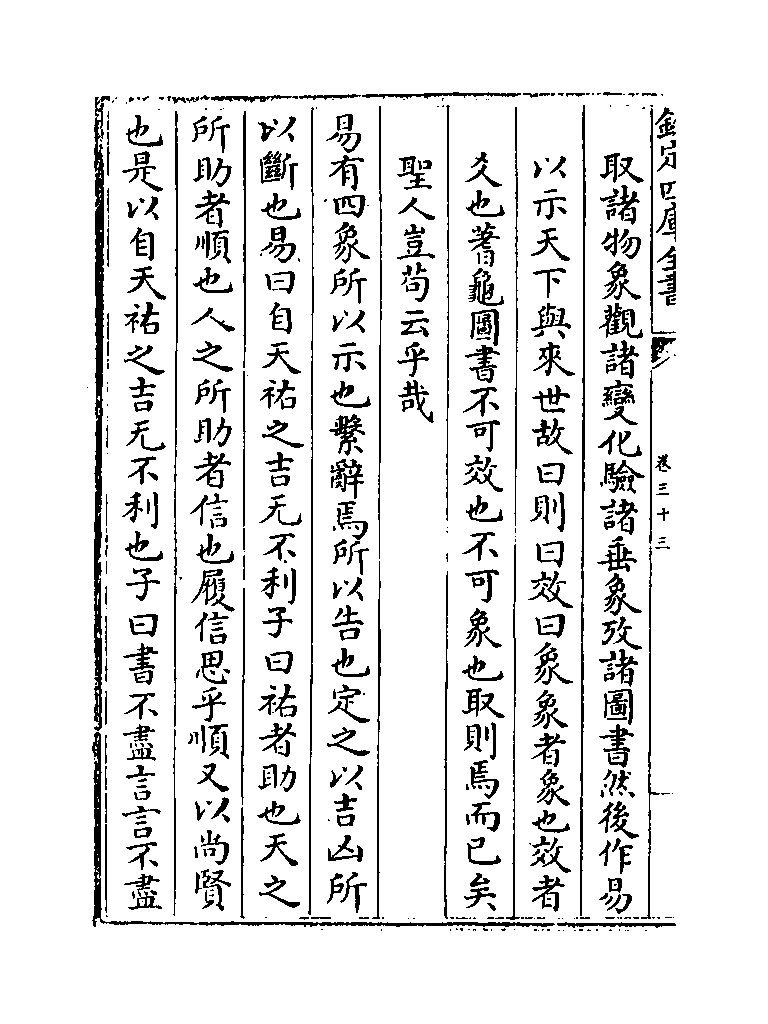 欽定四庫全書
卷三十三
取諸物象觀諸變化驗諸垂象攷諸圖書然後作易
以示天下與來世故曰則曰效曰象象者象也效者
爻也蓍龜圖書不可效也不可象也取則焉而已矣
聖人豈茍云乎哉
易有四象所以示也繫辭焉所以告也定之以吉凶所
以斷也易曰自天祐之吉无不利子曰祐者助也天之
所助者順也人之所助者信也履信思乎順又以尚賢
也是以自天祐之吉无不利也子曰書不盡言言不盡